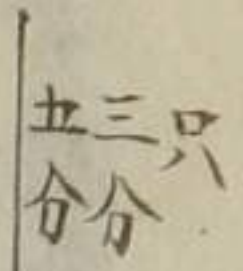 只
三分
五分